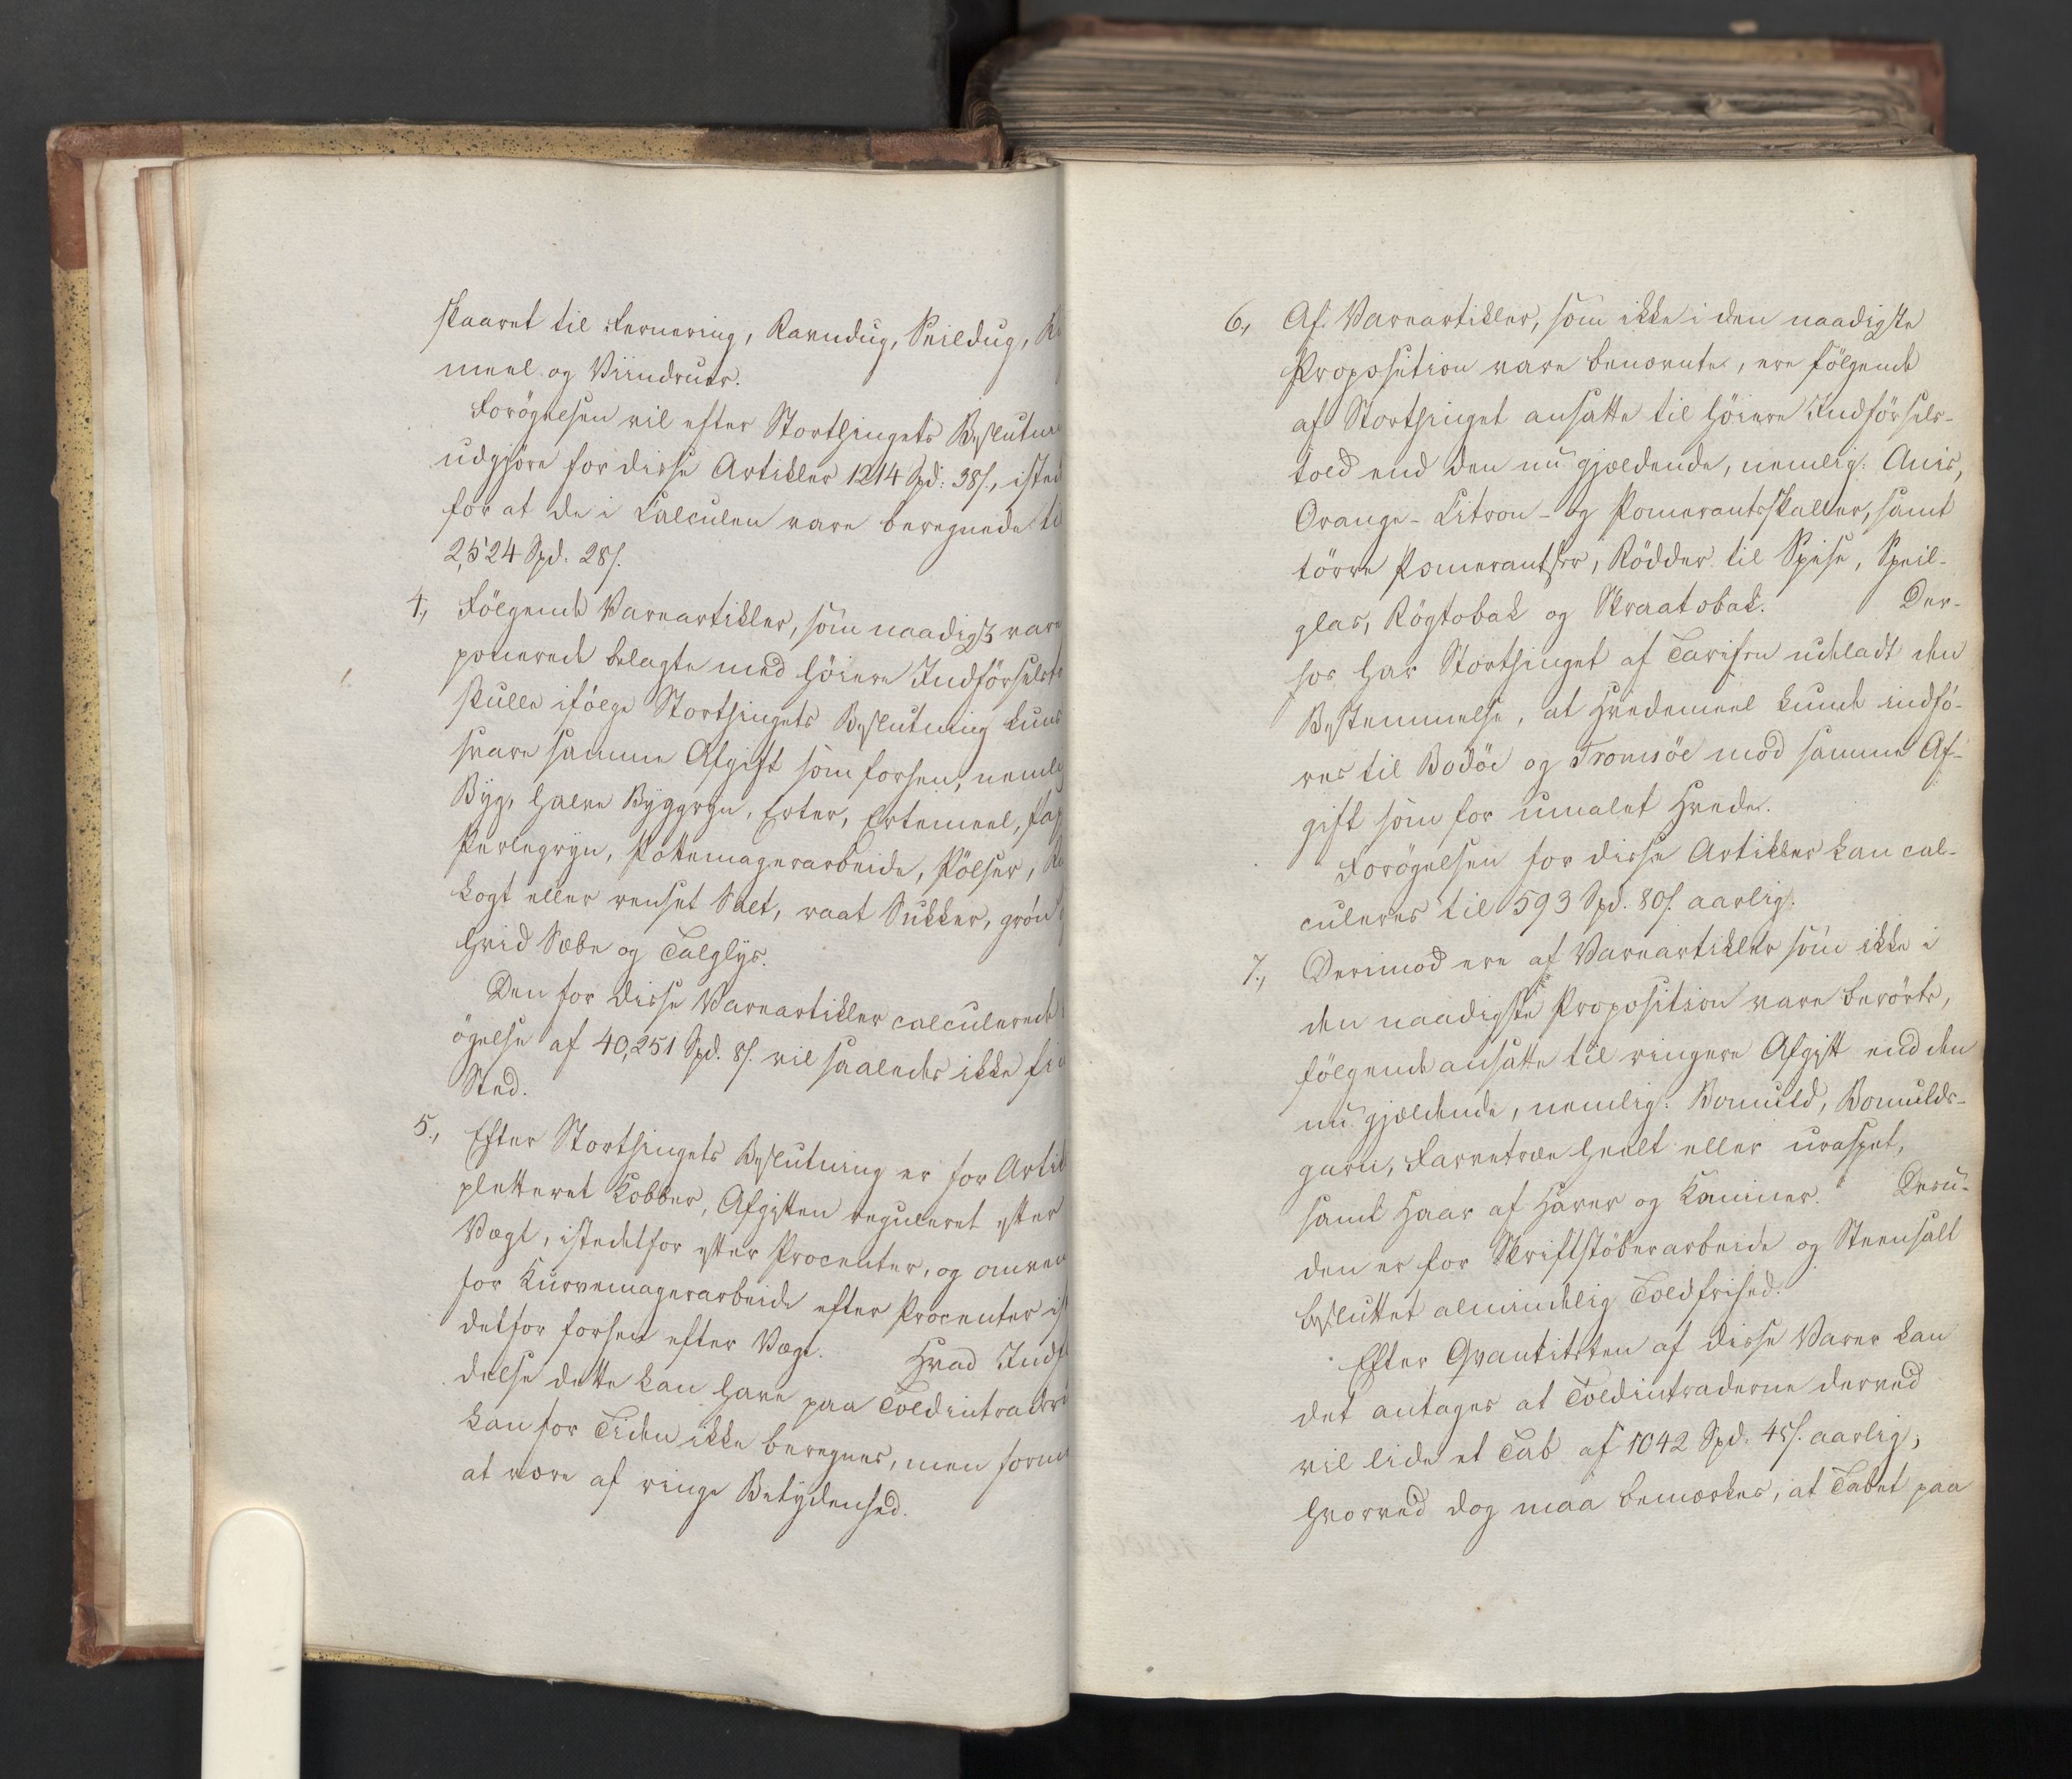 skaaret til Fernering, Ravndug, Seildug,
meel og Viindruer.
Forögelsen vil efter Storthingets Beslutni
udgjöre for disse Artikler 1214 Spd: 38 s., isted
for at de i Calculen vare beregnede til
2,524 Spd. 28 s.
4., Fölgende Vareartikler, som naadigst vare
ponerede belagte med höiere Indförselst
skulle ifölge Storthingets Beslutning kuns
svare samme Afgift som forhen, nemlig
Byg, halve Byggryn, Erter, Ertemeel, Pap
Perlegryn, Pottemagerarbeide, Pölser,
kogt eller renset Salt, raat Sukker, grön
hvid Sæbe og Talglys.
Den for disse Vareartikler calculerede
ögelse af 40,251 Spd. 8 s. vil saaledes ikke fin
Sted.
5., Efter Storthingets Beslutning er for Artik
pletteret Kobber, Afgiften reguleret efter
Vægt, istedetfor efter Procenter, og omven
for Kurvemagerarbeide efter Procenter ist
detfor forhen efter Vægt. Hvad Indfl
delse dette kan have paa Toldintradern
kan for Tiden ikke beregnes, men forme
at være af ringe Betydenhed.
6., Af Vareartikler, som ikke i den naadigste
Proposition vare benævnte, ere fölgende
af Storthinget ansatte til höiere Indförsels-
told end den nu gjældende, nemlig: Anis,
Orange- Citron- og Pomerantsskaller, samt
törre Pomerantser, Rödder til Spise, Speil-
glas, Rögtobak og Skraatobak. Der-
hos har Storthinget af Tarifen udeladt den
Bestemmelse, at Hvedemeel kunde indfö-
res til Bodöe og Tromsöe mod samme Af-
gift som for umalet Hvede.
Forögelsen for disse Artikler kan cal-
culeres til 593 Spd. 80 s. aarlig.
7., Derimod ere af Vareartikler som ikke i
den naadigste Proposition vare berörte,
fölgende ansatte til ringere Afgift end den
nu gjældende, nemlig: Bomuld, Bomulds-
garn, Farvetræe heelt eller uraspet,
samt Haar af Harer og Kaniner. Desu-
den er for Skriftstöberarbeide og Steensalt
besluttet almindelig Toldfrihed.
Efter Qvantiteten af disse Varer kan
det antages at Toldintraderne derved
vil lide et Tab af 1042 Spd. 45 s. aarlig;
hvorved dog maa bemærkes, at Tabet paa